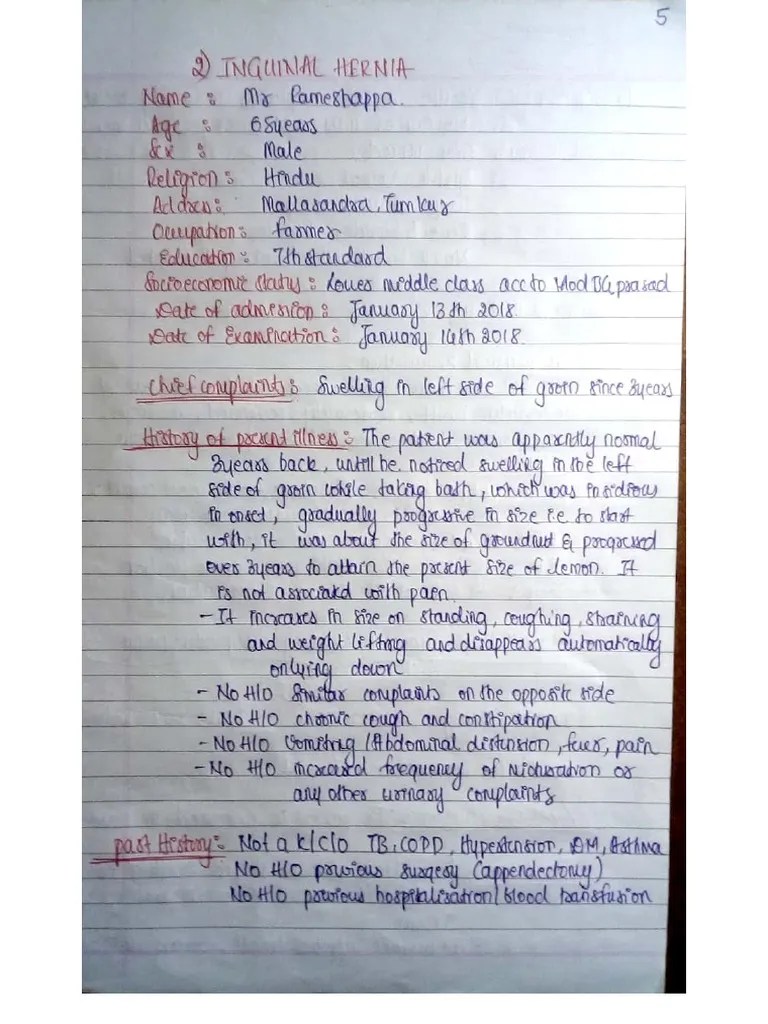 5
2) INGUINAL HERNIA
Name : Mr Rameshappa.
Age : 65years
Sex : Male
Religion : Hindu
Address : Mallasandra, Tumkur
Occupation : farmer
Education : 7th standard
Socioeconomic status : Lower middle class acc to Mod BG prasad
Date of admission : January 13th 2018.
Date of Examination : January 14th 2018.
Chief complaints : Swelling in left side of groin since 3years
History of present illness : The patient was apparently normal
3years back, until he noticed swelling in the left
side of groin while taking bath, which was insidious
in onset, gradually progressive in size i.e to start
with, it was about the size of groundnut & progressed
over 3years to attain the present size of lemon. It
is not associated with pain.
- It increases in size on standing, coughing, straining
and weight lifting and disappears automatically
on lying down
- No H/O similar complaints on the opposite side
- No H/O chronic cough and constipation
- No H/O vomiting /Abdominal distension, fever, pain
- No H/O increased frequency of micturation or
any other urinary complaints
past History : Not a k/c/o TB, COPD, Hypertension, DM, Asthma
No H/O previous surgery (appendectomy)
No H/O previous hospitalisation/blood transfusion